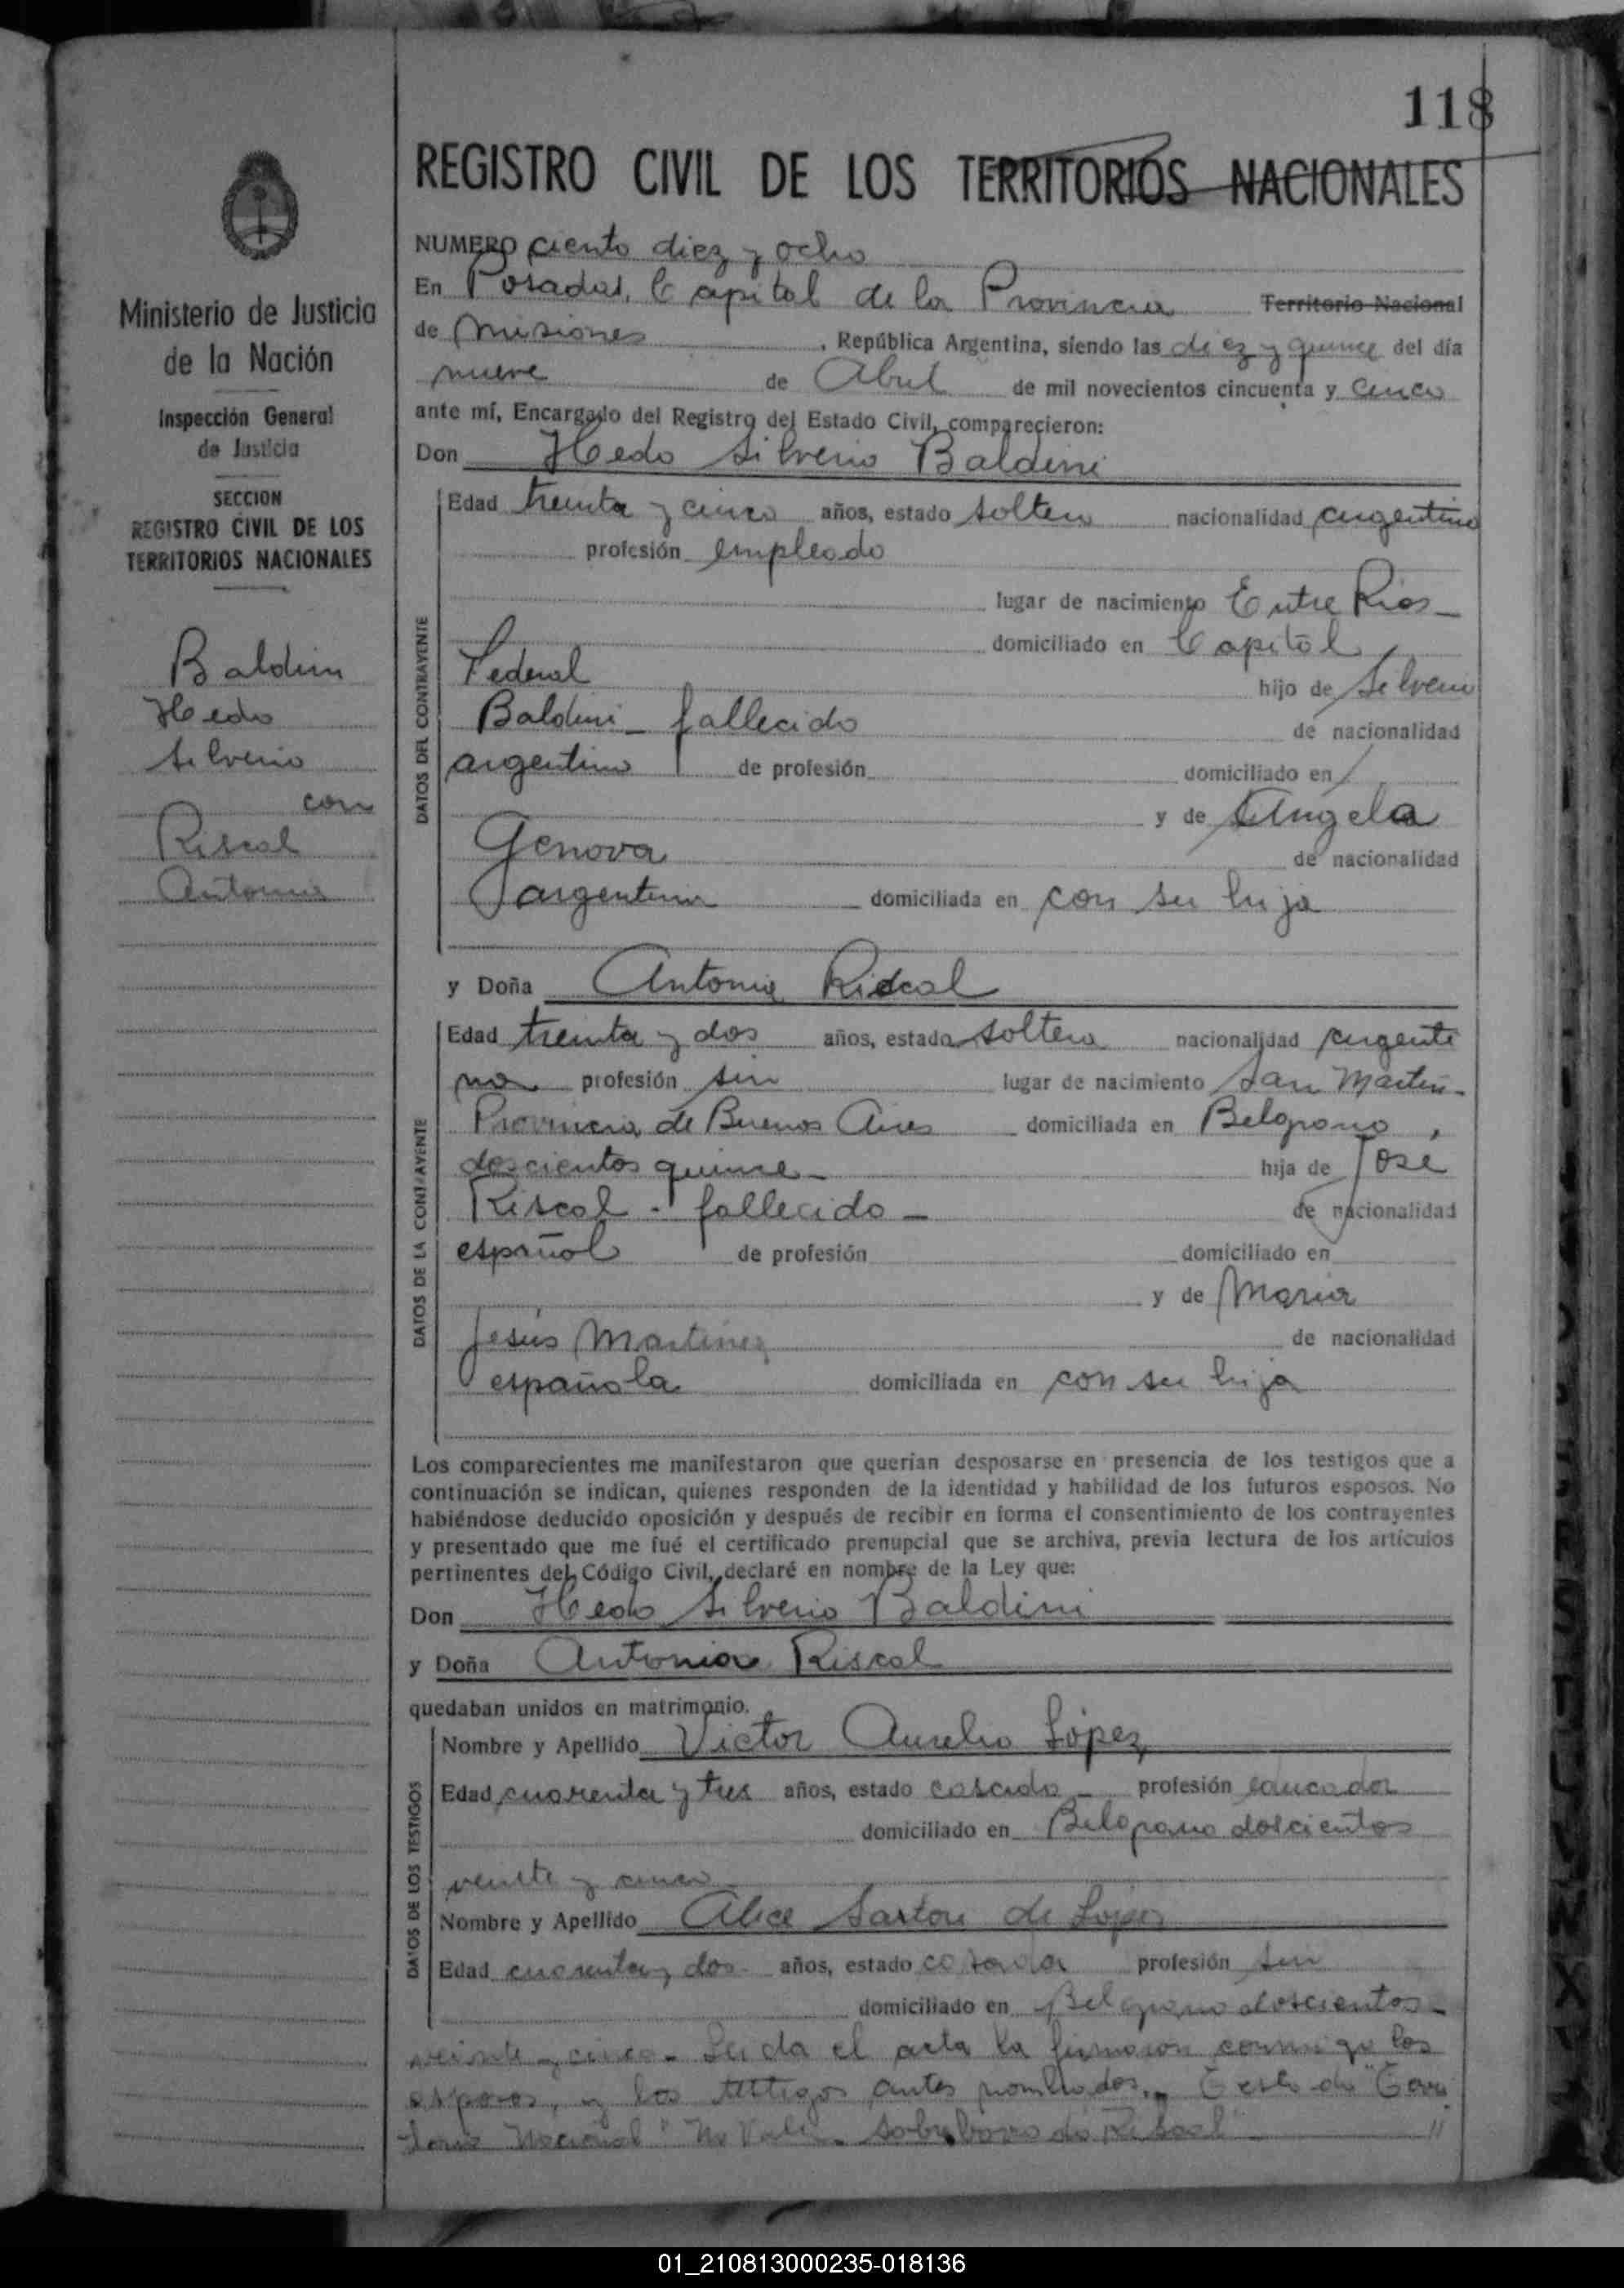 118
REGISTRO CIVIL DE LOS TERRITORIOS NACIONALES
Ministerio de Justicia
de la Nación
Inspección General
de Justicia
SECCION
REGISTRO CIVIL DE LOS
TERRITORIOS NACIONALES
Baldini
Hedo
Silverio
con
Riscal
Antonia
NUMERO ciento diez y ocho
En Posadas, Capital de la Provincia Territorio Nacional
de Misiones, República Argentina, siendo las diez y quince del día
nueve de Abril de mil novecientos cincuenta y cinco
ante mí, Encargado del Registro del Estado Civil, comparecieron:
Don Hedo Silverio Baldini
DATOS DEL CONTRAYENTE
Edad treinta y cinco años, estado soltero nacionalidad argentino
profesión empleado
lugar de nacimiento Entre Rios_
domiciliado en Capital
Federal hijo de Silverio
Baldini_ fallecido de nacionalidad
argentino de profesión domiciliado en
y de Angela
Genova de nacionalidad
argentina domiciliada en con su hija
y Doña Antonia Riscal
DATOS DE LA CONTRAYENTE
Edad treinta y dos años, estado soltera nacionalidad argenti
na profesión sin lugar de nacimiento San Martin-
Provincia de Buenos Aires domiciliada en Belgrano,
doscientos quince_ hija de José
Riscal - fallecido_ de nacionalidad
español de profesión domiciliado en
y de Maria
Jesús Martinez de nacionalidad
española domiciliada en con su hija
Los comparecientes me manifestaron que querían desposarse en presencia de los testigos que a
continuación se indican, quienes responden de la identidad y habilidad de los futuros esposos. No
habiéndose deducido oposición y después de recibir en forma el consentimiento de los contrayentes
y presentado que me fué el certificado prenupcial que se archiva, previa lectura de los artículos
pertinentes del Código Civil, declaré en nombre de la Ley que:
Don Hedo Silverio Baldini
y Doña Antonia Riscal
quedaban unidos en matrimonio.
DATOS DE LOS TESTIGOS
Nombre y Apellido Victor Aurelio López
Edad cuarenta y tres años, estado casado_ profesión educador
domiciliado en Belgrano doscientos
veinte y cinco_
Nombre y Apellido Alice Sartori de López
Edad cuarenta y dos años, estado casada profesión sin
domiciliado en Belgrano doscientos_
veinte y cinco_ Leida el acta la firmaron conmigo los
esposos, y los testigos antes nombrados._ Testado "Terri
torio Nacional" No Vale_ Sobreborrado Riscal" //
01_210813000235-018136